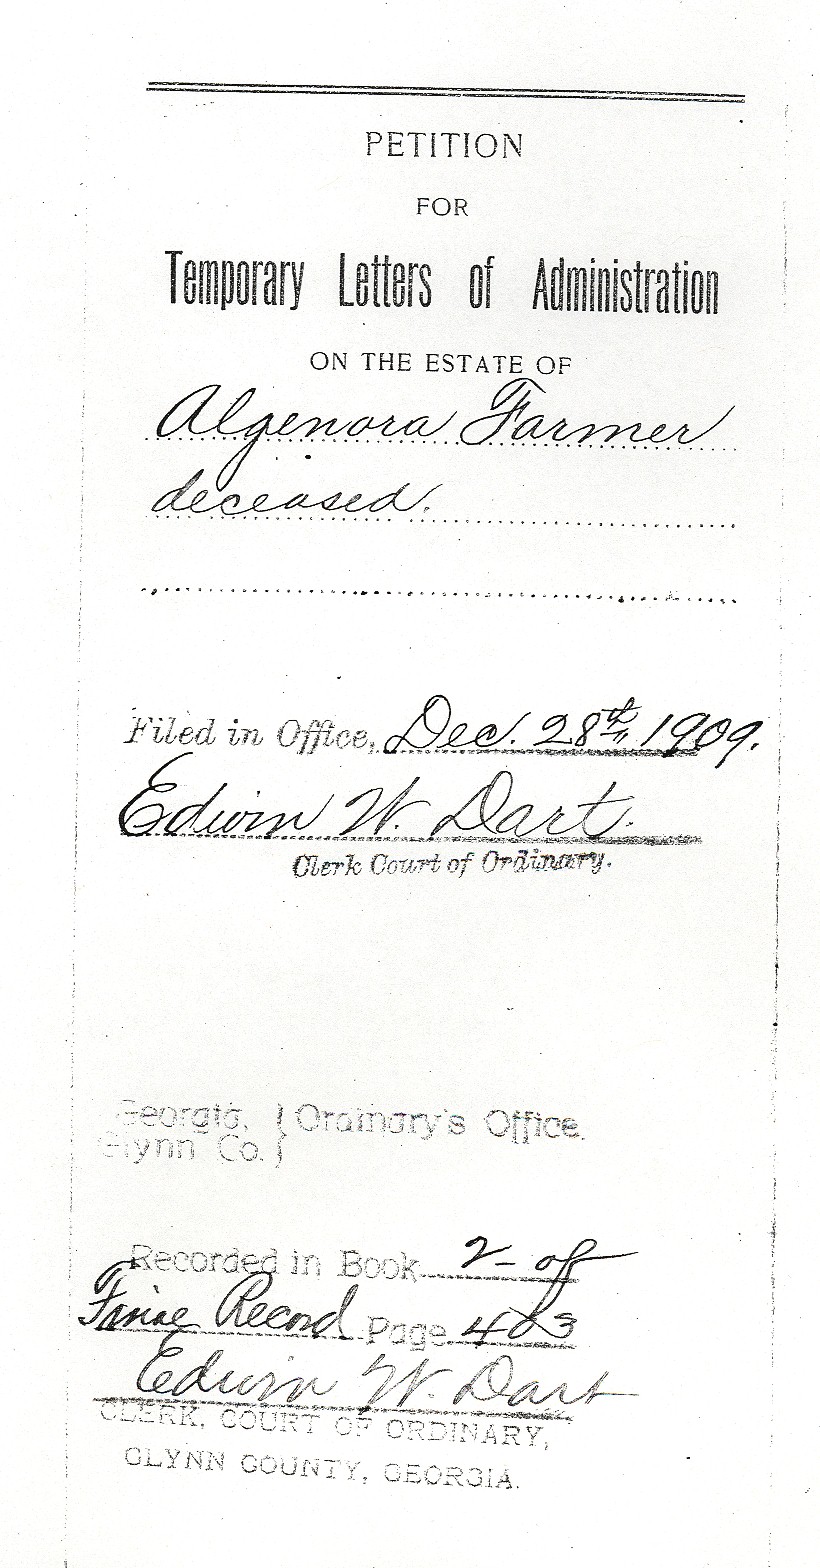 PETITION
FOR
Temporary Letters of Administration
ON THE ESTATE OF
Algenora Farmer
deceased.
Filed in Office, Dec. 28th, 1909.
Edwin W. Dart.
Clerk Court of Ordinary.
Georgia, } Ordinary's Office.
Glynn Co. }
Recorded in Book 2- of
Record Page 403
Edwin W. Dart
CLERK, COURT OF ORDINARY,
GLYNN COUNTY, GEORGIA.